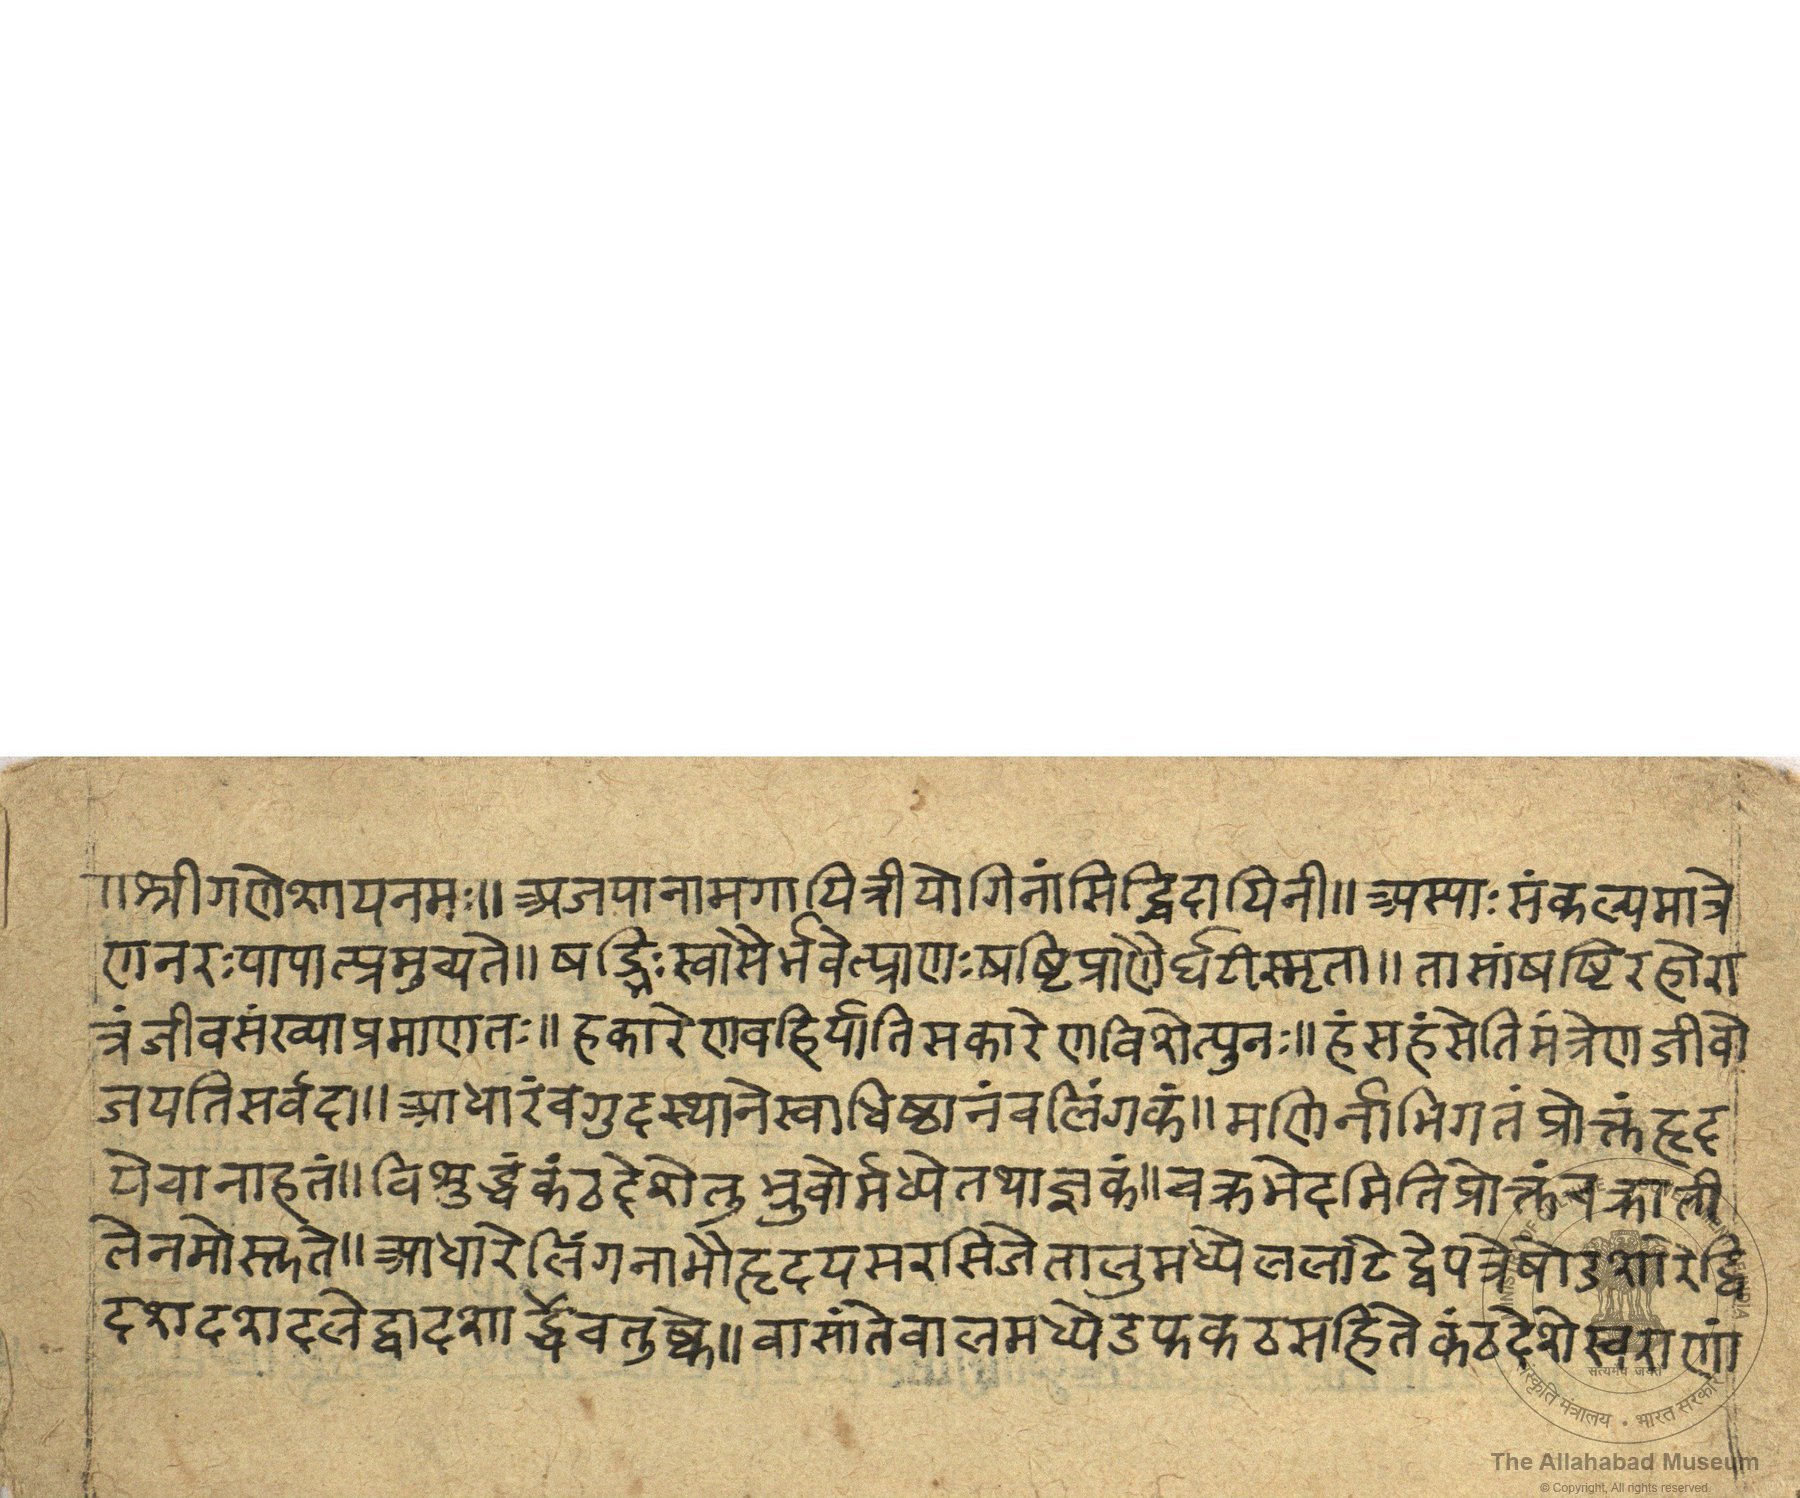 ॥श्रीगणेशायनमः॥ अजपानामगायित्रीयोगिनांसिद्धिदायिनी॥ अस्याः संकल्पमात्रे
णनरःपापात्प्रमुच्यते॥ षड्भिःस्वासैर्भवेत्प्राणःषष्टिप्राणैर्घटीस्मृता॥ तासांषष्टिरहोरा
त्रंजीवसंख्याप्रमाणतः॥ हकारेणवहिर्यातिसकारेणविशेत्पुनः॥ हंसहंसेतिमंत्रेणजीवो
जयतिसर्वदा॥ आधारंवगुदस्थानेस्वाधिष्ठानंवलिंगकं॥ मणिर्नाभिगतंप्रोक्तंहृद
येवानाहतं॥ विशुद्धंकंठदेशेतुभ्रुवोर्मध्येतथाज्ञकं॥ चक्रभेदमितिप्रोक्तंचक्राती
तेनमोस्कते॥ आधारेलिंगनाभौहृदयसरसिजेतालुमध्येललाटेद्वेपत्रेषोडशारेद्वि
दशदशदलेद्वादशार्द्धेचतुष्के॥ वासांतेवालमध्येडफकठसहितेकंठदेशेस्वराणां
सत्यमेव जयते
संस्कृति मंत्रालय • भारत सरकार
The Allahabad Museum
© Copyright, All rights reserved